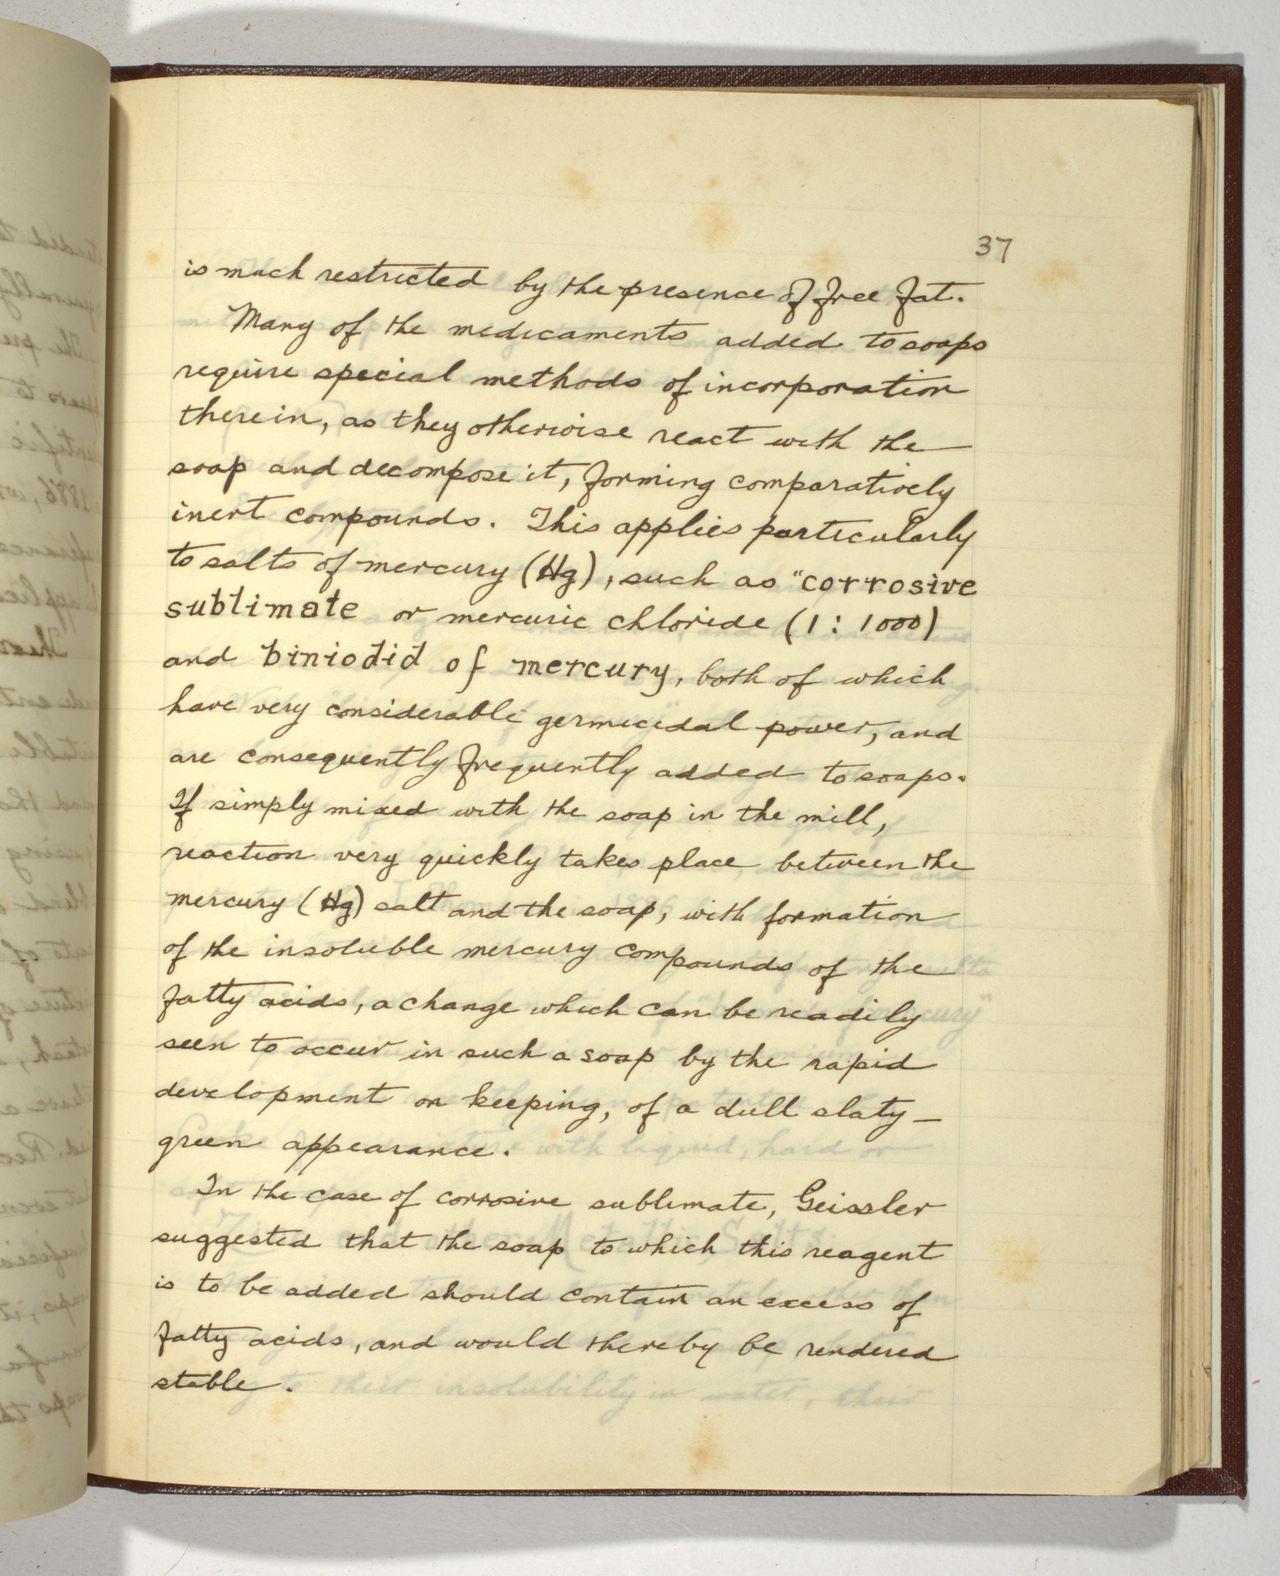 37
is much restricted by the presence of free fat.
Many of the medicaments added to soaps
require special methods of incorporation
therein, as they otherwise react with the
soap and decompose it, forming comparatively
inert compounds. This applies particularly
to salts of mercury (Hg), such as "corrosive
sublimate or mercuric chloride (1:1000)
and biniodid of mercury, both of which
have very considerable germicidal power, and
are consequently frequently added to soaps.
If simply mixed with the soap in the mill,
reaction very quickly takes place between the
mercury (Hg) salt and the soap, with formation
of the insoluble mercury compounds of the
fatty acids, a change which can be readily
seen to occur in such a soap by the rapid
development on keeping, of a dull slaty-
green appearance.
In the case of corrosive sublimate, Geissler
suggested that the soap to which this reagent
is to be added should contain an excess of
fatty acids, and would thereby be rendered
stable.